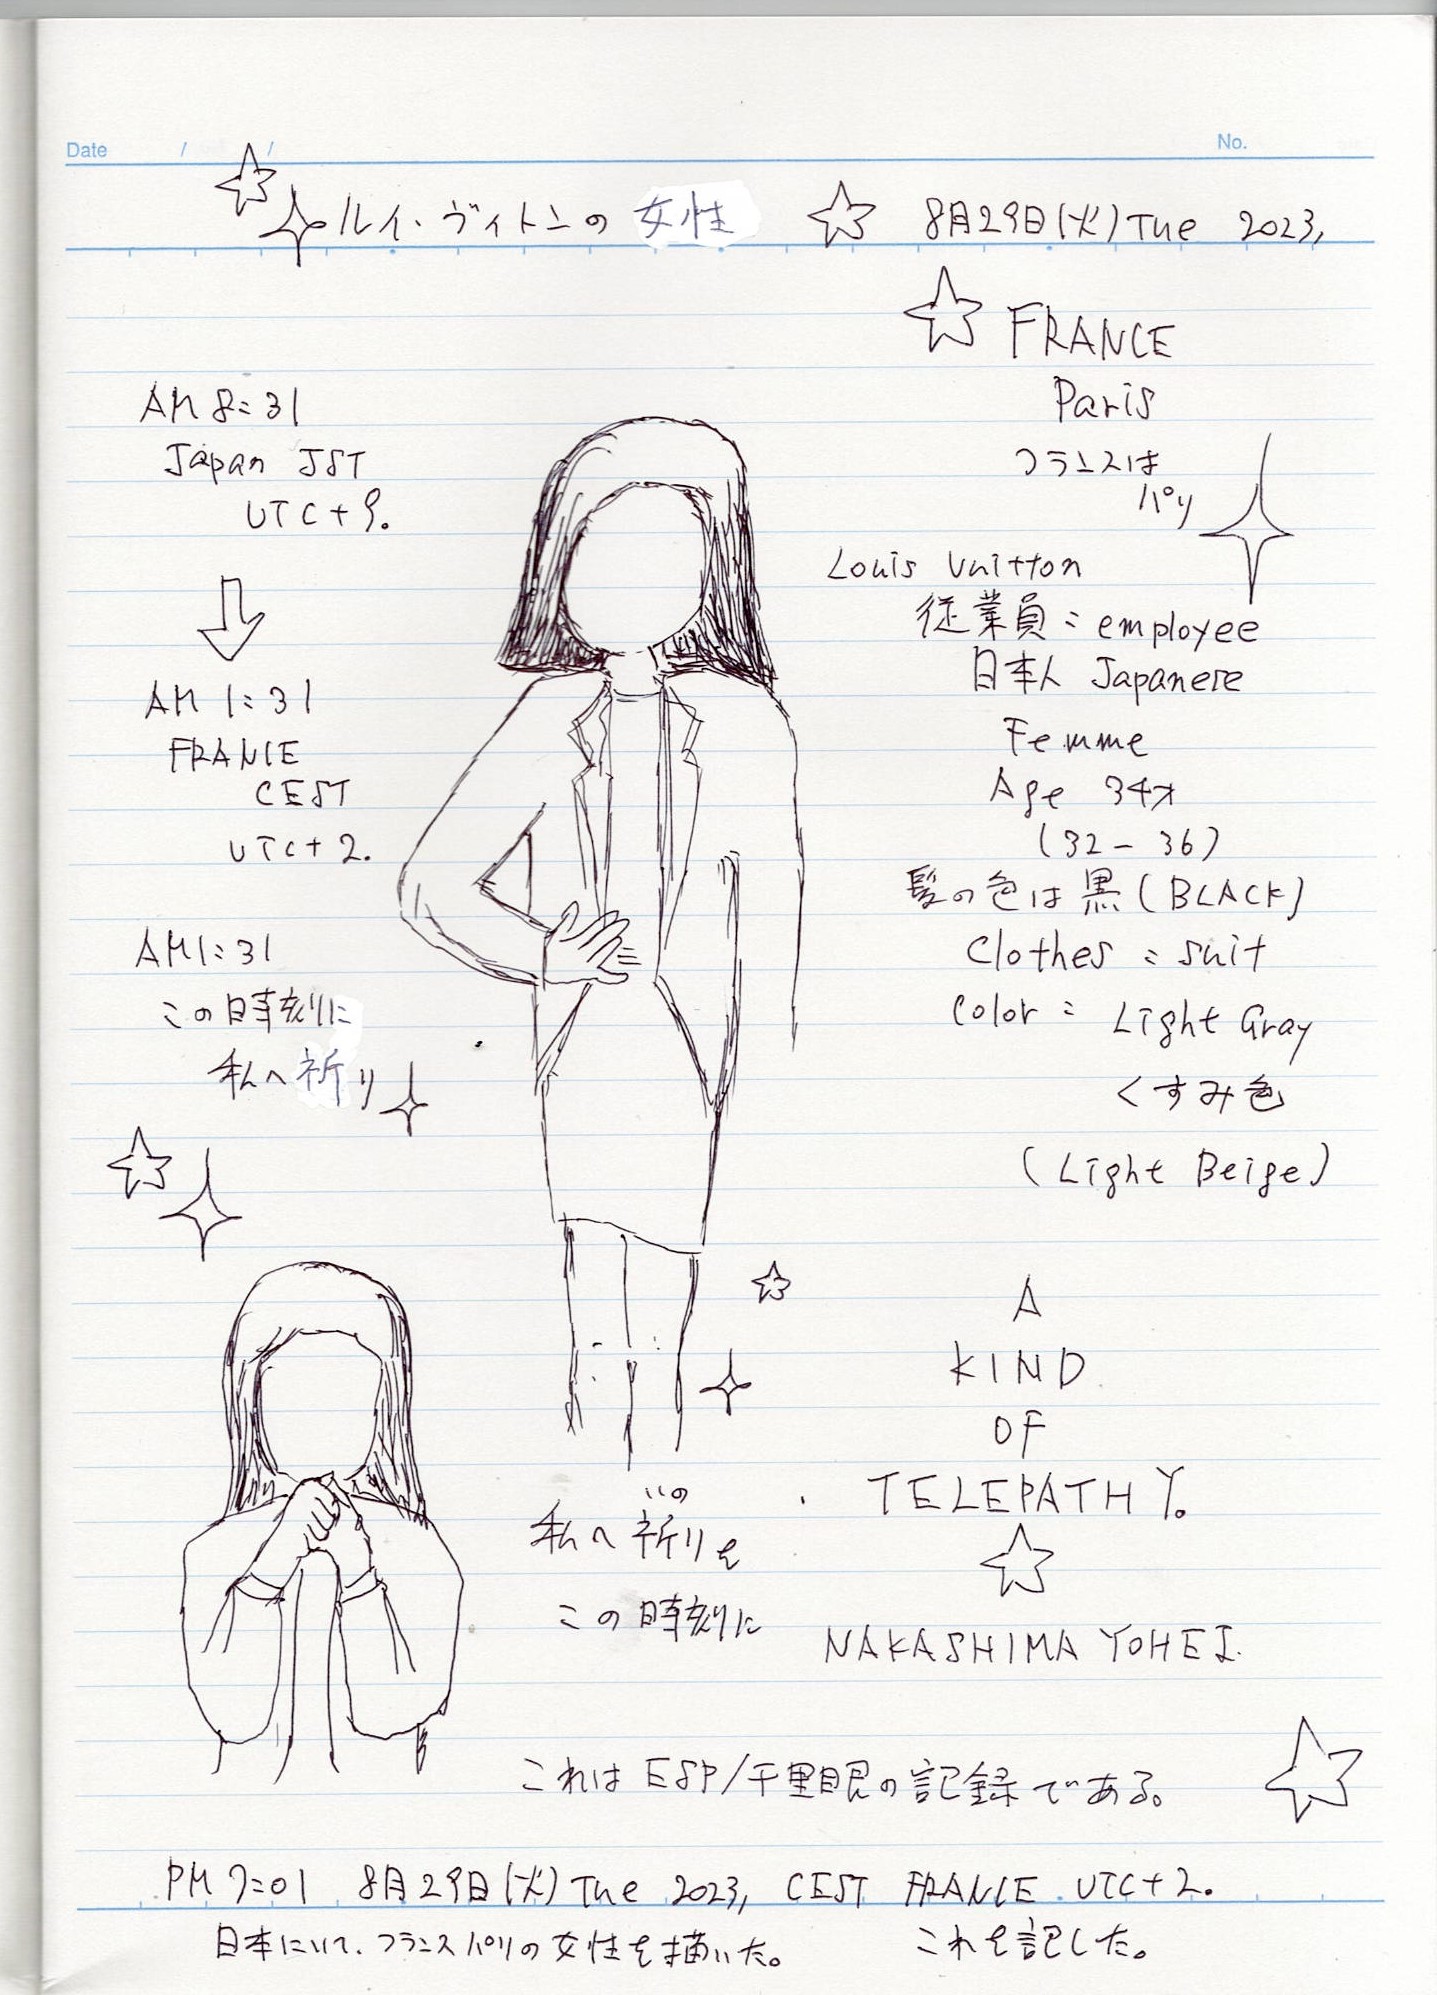 Date / /
No.
ルイ・ヴィトンの女性
8月29日(火)Tue 2023,
FRANCE
Paris
フランスは
パリ
AM 8:31
Japan JST
UTC+9.
AM 1:31
FRANCE
CEST
UTC+2.
AM1:31
この時刻に
私へ祈り
Louis Vuitton
従業員:employee
日本人 Japanese
Femme
Age 34才
(32-36)
髪の色は黒(BLACK)
Clothes:suit
Color:Light Gray
くすみ色
(Light Beige)
A
KIND
OF
TELEPATHY.
NAKASHIMA YOHEI.
いの
私へ祈りを
この時刻に
これはESP/千里眼の記録である。
PM 7:01 8月29日(火)Tue 2023, CEST FRANCE UTC+2.
日本にいて、フランスパリの女性を描いた。 これを記した。